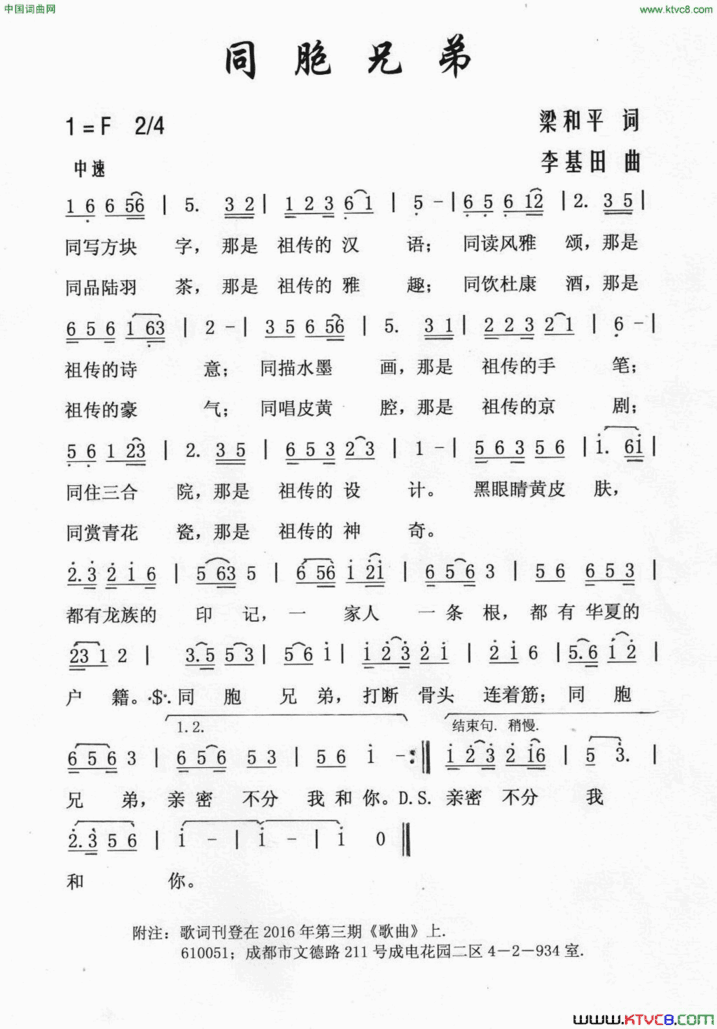 中国词曲网
www.ktvc8.com
同胞兄弟
1=F 2/4
梁和平 词
中速
李基田 曲
1 6 6 56 | 5. 3 2 | 1 2 3 6 1 | 5 - | 6 5 6 12 | 2. 3 5 |
同写方块 字，那是 祖传的 汉 语； 同读风雅 颂，那是
同品陆羽 茶，那是 祖传的 雅 趣； 同饮杜康 酒，那是
6 5 6 1 63 | 2 - | 3 5 6 56 | 5. 3 1 | 2 2 3 2 1 | 6 - |
祖传的诗 意； 同描水墨 画，那是 祖传的手 笔；
祖传的豪 气； 同唱皮黄 腔，那是 祖传的京 剧；
5 6 1 23 | 2. 3 5 | 6 5 3 2 3 | 1 - | 5 6 3 5 6 | i. 6i |
同住三合 院，那是 祖传的 设 计。 黑眼睛黄皮 肤，
同赏青花 瓷，那是 祖传的 神 奇。
2.3 2 i 6 | 5 63 5 | 6 56 i 2i | 6 5 6 3 | 5 6 6 5 3 |
都有龙族的 印 记，一 家人 一 条 根，都 有 华夏的
23 1 2 | 3.5 5 3 | 5 6 i | i 2 3 2 i | 2 i 6 | 5.6 i 2 |
户 籍。·$·同 胞 兄 弟，打断 骨头 连着筋；同 胞
1.2.
结束句. 稍慢.
6 5 6 3 | 6 5 6 5 3 | 5 6 i -:‖ i 2 3 2 i6 | 5 3. |
兄 弟，亲密 不分 我和你。D.S.亲密 不分 我
2.3 5 6 | i - | i - | i 0 ‖
和 你。
附注：歌词刊登在2016年第三期《歌曲》上.
610051；成都市文德路211号成电花园二区4-2-934室.
www.KTVC8.com